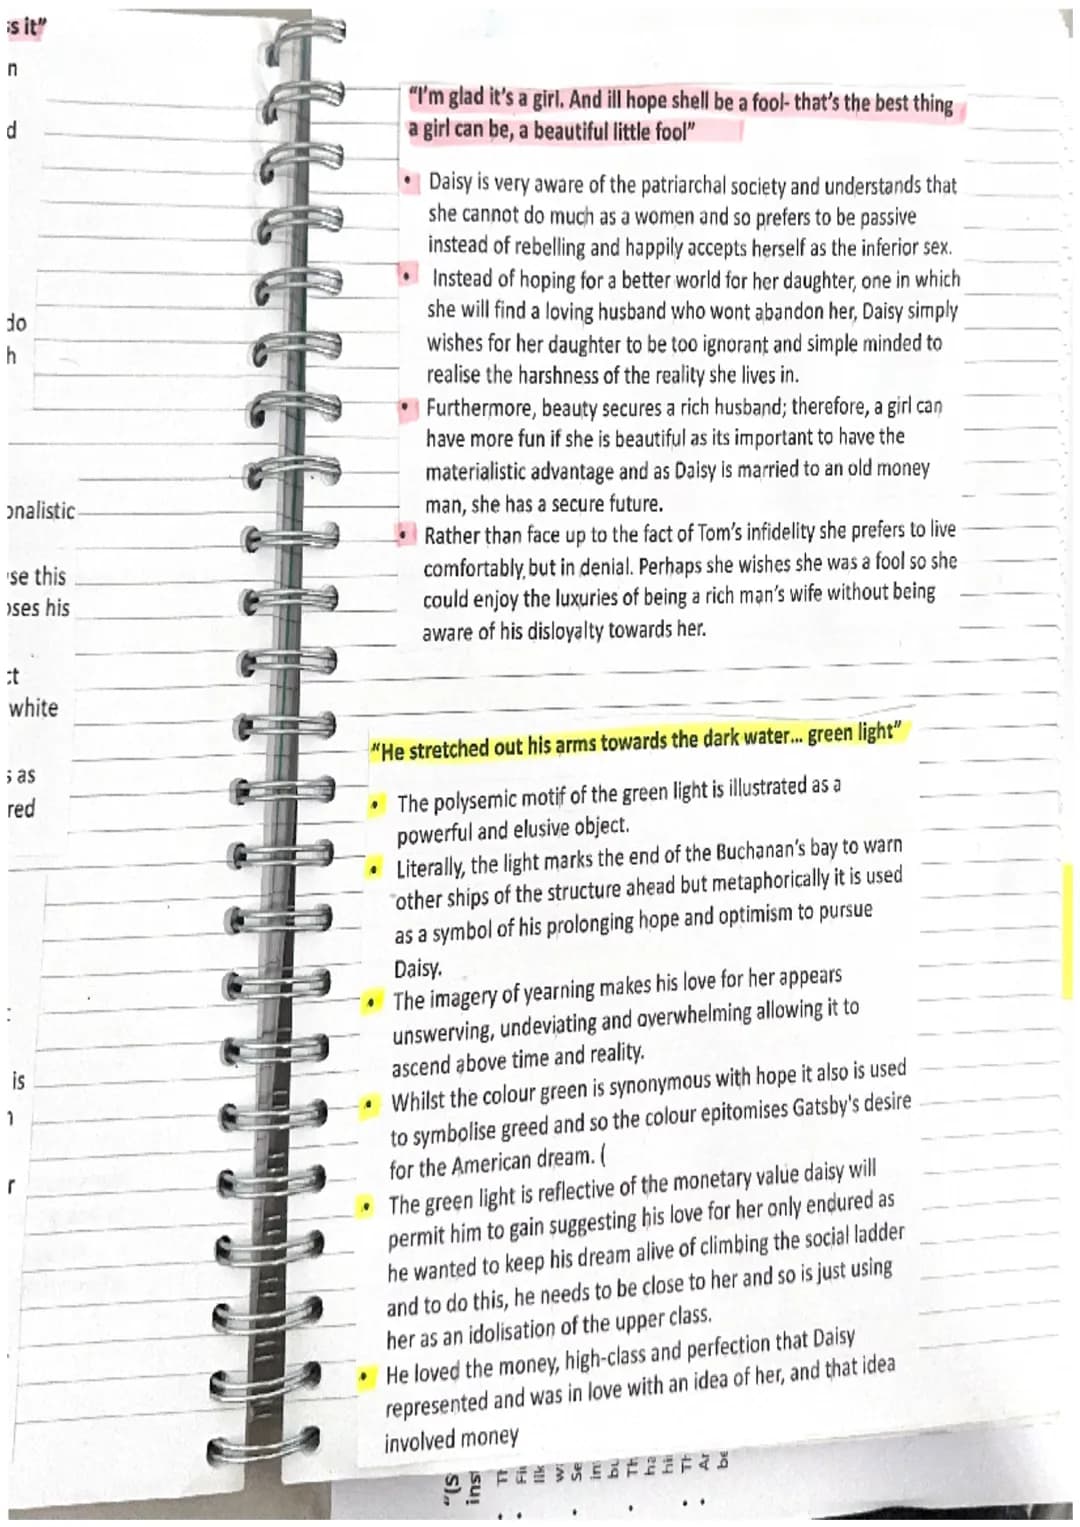 ss it"
n
d
do
h
onalistic
se this
oses his
ct
white
s as
red
:
is
r
"I'm glad it's a girl. And ill hope shell be a fool- that's the best thing
a girl can be, a beautiful little fool"
• Daisy is very aware of the patriarchal society and understands that
she cannot do much as a women and so prefers to be passive
instead of rebelling and happily accepts herself as the inferior sex.
• Instead of hoping for a better world for her daughter, one in which
she will find a loving husband who wont abandon her, Daisy simply
wishes for her daughter to be too ignorant and simple minded to
realise the harshness of the reality she lives in.
• Furthermore, beauty secures a rich husband; therefore, a girl can
have more fun if she is beautiful as its important to have the
materialistic advantage and as Daisy is married to an old money
man, she has a secure future.
• Rather than face up to the fact of Tom's infidelity she prefers to live
comfortably, but in denial. Perhaps she wishes she was a fool so she
could enjoy the luxuries of being a rich man's wife without being
aware of his disloyalty towards her.
"He stretched out his arms towards the dark water... green light"
• The polysemic motif of the green light is illustrated as a
powerful and elusive object.
• Literally, the light marks the end of the Buchanan's bay to warn
other ships of the structure ahead but metaphorically it is used
as a symbol of his prolonging hope and optimism to pursue
Daisy.
• The imagery of yearning makes his love for her appears
unswerving, undeviating and overwhelming allowing it to
ascend above time and reality.
• Whilst the colour green is synonymous with hope it also is used
to symbolise greed and so the colour epitomises Gatsby's desire
for the American dream. (
• The green light is reflective of the monetary value daisy will
permit him to gain suggesting his love for her only endured as
he wanted to keep his dream alive of climbing the social ladder
and to do this, he needs to be close to her and so is just using
her as an idolisation of the upper class.
• He loved the money, high-class and perfection that Daisy
represented and was in love with an idea of her, and that idea
involved money
"(S
inst
Fi
lik
w
Se
in
bu
Th
ha
hi
Th
Ar
be